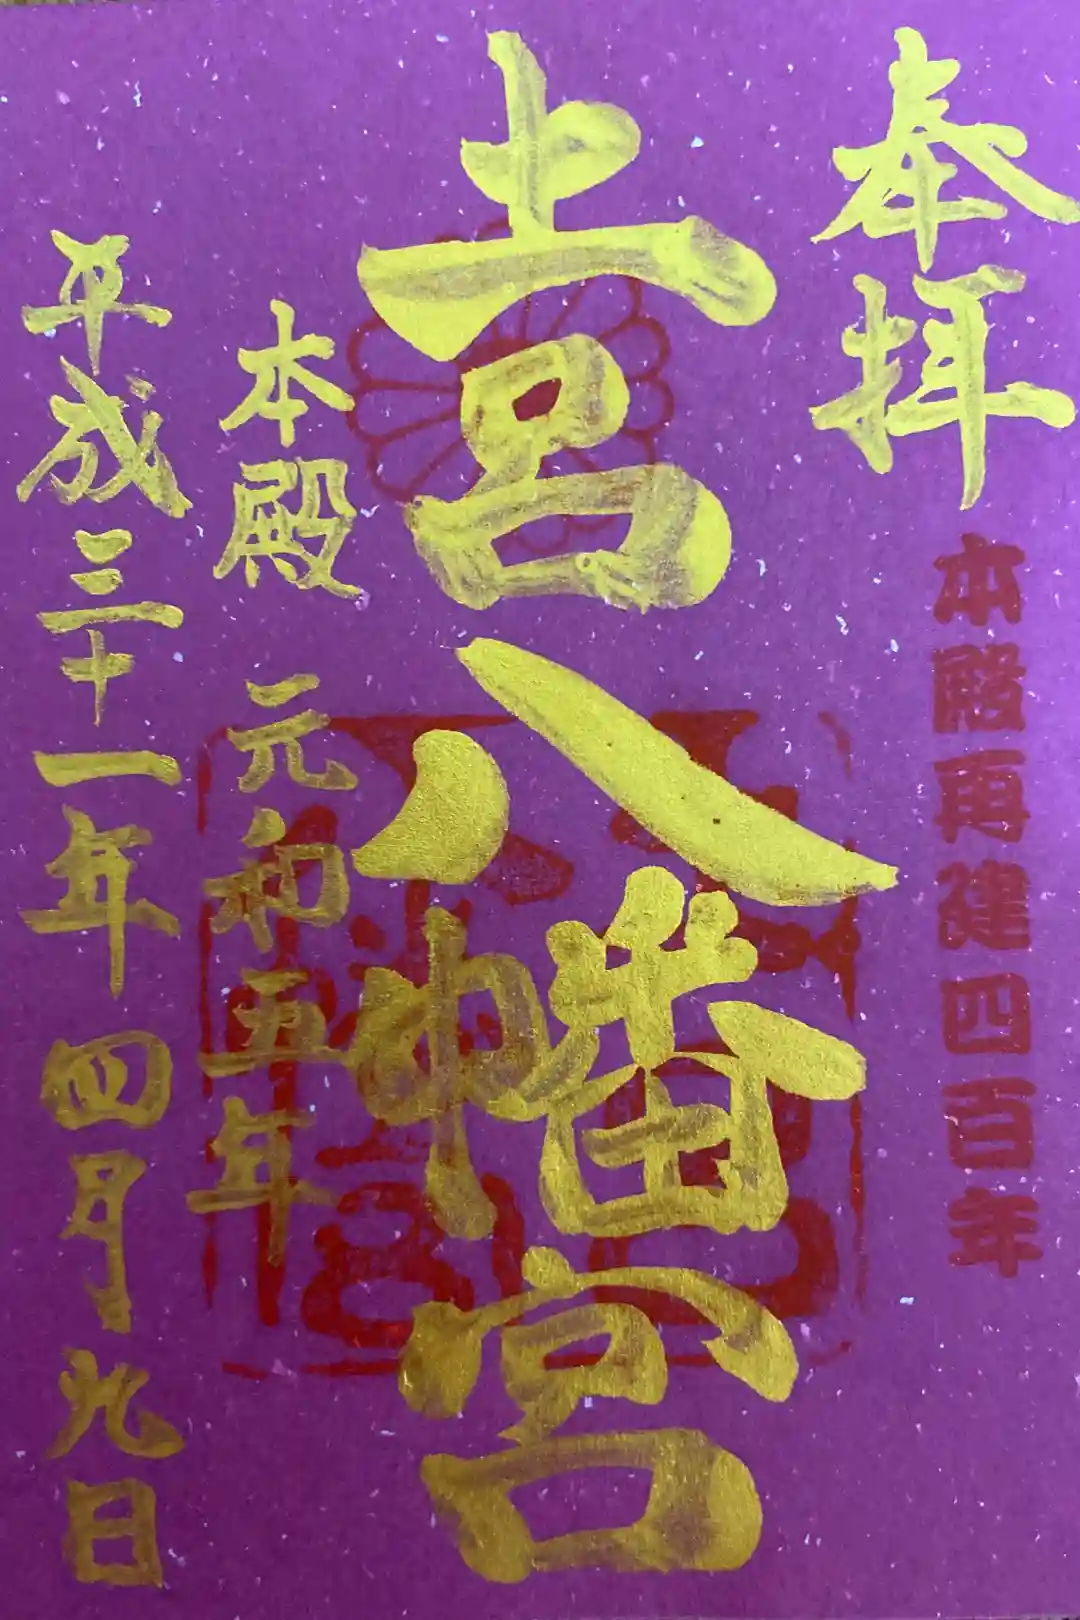 奉拝
本殿再建四百年
土呂八幡宮
本殿 元和五年
平成三十一年四月九日